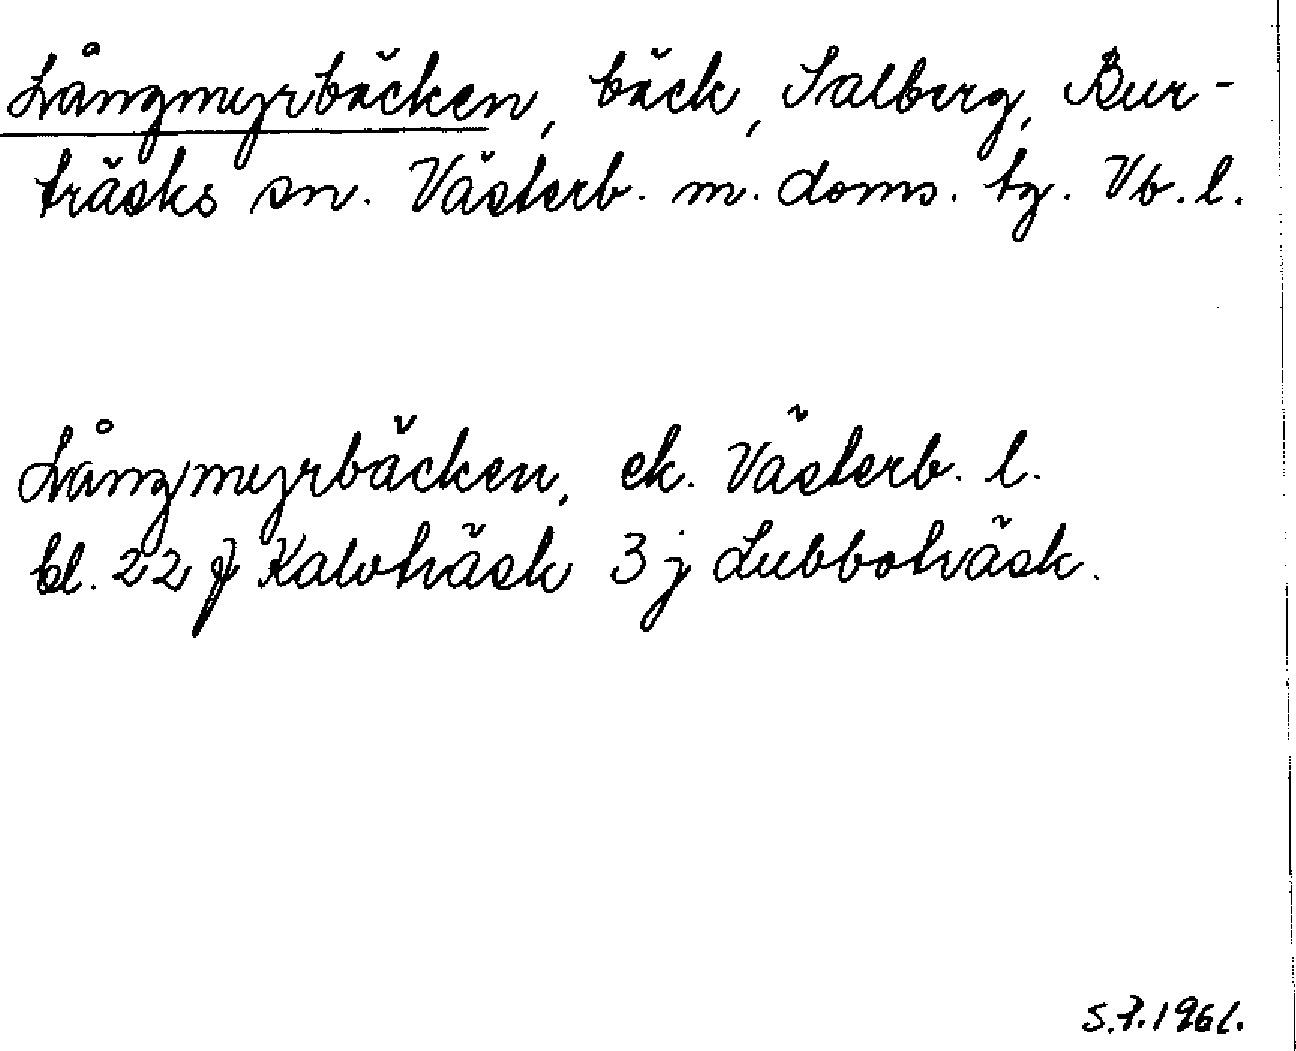 Långmyrbäcken, bäck, Salberg, Bur-
träsks sn. Västerb. m. doms. tg. Vb. l.
Långmyrbäcken, ek. Västerb. l.
bl. 22 j Kalvträsk 3 j Lubboträsk.
S.P. 1961.